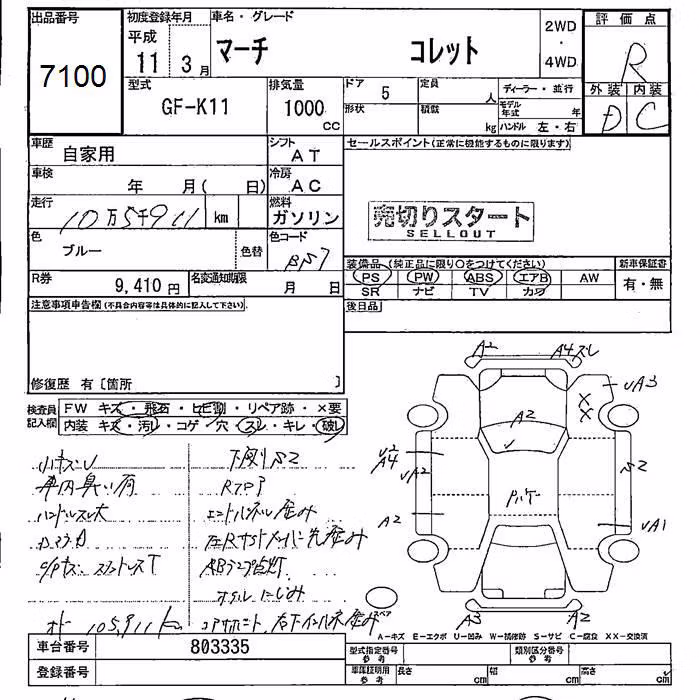 出品番号
7100
初度登録年月
平成
11 3 月
車名・グレード
マーチ コレット
2WD
・
4WD
評価点
R
外装 内装
D C
型式
GF-K11
排気量
1000
CC
ドア 5
形状
定員 人
積載 kg
ディーラー・並行
モデル年式 年
ハンドル 左・右
車歴
自家用
シフト
AT
セールスポイント(正常に機能するものに限ります)
車検
年 月( 日)
冷房
AC
走行
10万5千911 km
燃料
ガソリン
売切りスタート
SELLOUT
色
ブルー
色替
色コード
R券
9,410 円
名変通知期限
月 日
装備品 (純正品に限り○をつけてください)
PS PW ABS エアB AW
SR ナビ TV カワ
新車保証書
有・無
注意事項申告欄(不具合内容等は具体的に記入して下さい)
後日品
修復歴 有〔箇所 〕
検査員
記入欄
FW キズ・飛石・ヒビ割・リペア跡・×要
内装 キズ・汚レ・コゲ・穴・スレ・キレ・破レ
小キズU
下廻りS2
車内臭い有
ハンドルスレ大
オイルにじみ
105911km
A2
A4
UA3
A2
X
X
A4
UA2
S2
A2
UA1
スペア
A3
A2
A-キズ E-エクボ U-凹み W-補修跡 S-サビ C-腐食 XX-交換済
車台番号 803335
登録番号
型式指定番号
参考
類別区分番号
参考
車庫証明用
参考
長さ cm
幅 cm
高さ cm